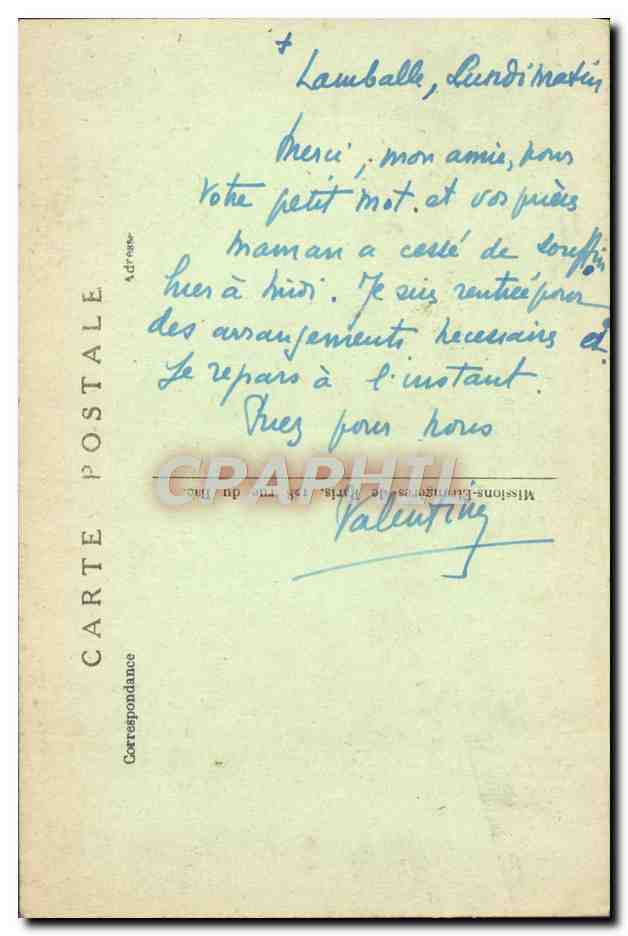 +
Lamballe, Lundi matin
Merci, mon amie, pour
votre petit mot et vos prières
maman a cessé de souffrir
hier à midi. Je suis rentrée pour
des arrangements necessaires et
Je repars à l'instant.
Priez pour nous
Valentine
CARTE POSTALE
Correspondance
Adresse
Missions-Étrangères de Paris, 128 rue du Bac.
CPAPHIL